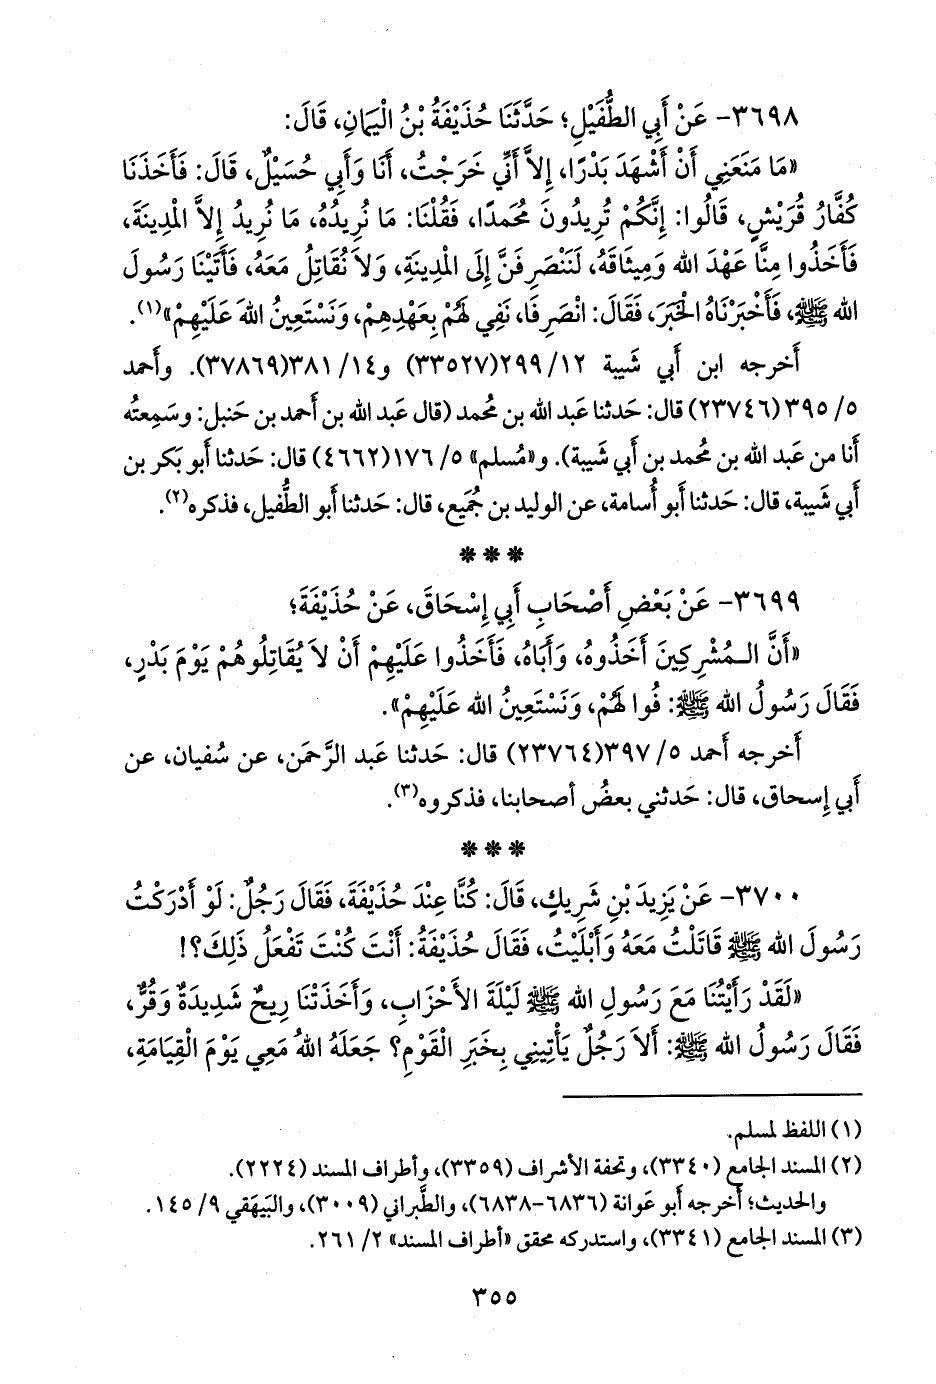 ٣٦٩٨- عَنْ أَبِي الطُّفَيْلِ؛ حَدَّثَنَا حُذَيْفَةُ بْنُ الْيَمَانِ، قَالَ:
«مَا مَنَعَنِي أَنْ أَشْهَدَ بَدْرًا، إِلاَّ أَنِّي خَرَجْتُ، أَنَا وَأَبِي حُسَيْلٌ، قَالَ: فَأَخَذَنَا
كُفَّارُ قُرَيْشٍ، قَالُوا: إِنَّكُمْ تُرِيدُونَ مُحَمدًا، فَقُلْنَا: مَا نُرِيدُهُ، مَا نُرِيدُ إِلاَّ الْمَدِينَةَ،
فَأَخَذُوا مِنَّا عَهْدَ الله وَمِيثَاقَهُ، لَنَنْصَرِفَنَّ إِلَى الْمَدِينَةِ، وَلاَ نُقَاتِلُ مَعَهُ، فَأَتَيْنَا رَسُولَ
الله ﷺ، فَأَخْبَرْنَاهُ الْخَبَرَ، فَقَالَ: انْصَرِفَا، نَفِي لَهُمْ بِعَهْدِهِمْ، وَنَسْتَعِينُ اللهَ عَلَيْهِمْ»(١).
أَخرجه ابن أَبي شَيبة ١٢/ ٢٩٩(٣٣٥٢٧) و١٤/ ٣٨١(٣٧٨٦٩). وأَحمد
٥/ ٣٩٥(٢٣٧٤٦) قال: حَدثنا عَبد الله بن مُحمد (قال عَبد الله بن أَحمد بن حَنبل: وسَمِعتُه
أَنا من عَبد الله بن مُحمد بن أَبي شَيبة). و«مُسلم» ٥/ ١٧٦(٤٦٦٢) قال: حَدثنا أَبو بَكر بن
أَبي شَيبة، قال: حَدثنا أَبو أُسامة، عن الوليد بن جُمَيع، قال: حَدثنا أَبو الطُّفيل، فذكره(٢).
***
٣٦٩٩- عَنْ بَعْضِ أَصْحَابِ أَبِي إِسْحَاقَ، عَنْ حُذَيْفَةَ؛
«أَنَّ الـمُشْرِكِينَ أَخَذُوهُ، وَأَبَاهُ، فَأَخَذُوا عَلَيْهِمْ أَنْ لاَ يُقَاتِلُوهُمْ يَوْمَ بَدْرٍ،
فَقَالَ رَسُولُ الله ﷺ: فُوا لَهُمْ، وَنَسْتَعِينُ الله عَلَيْهِمْ».
أَخرجه أَحمد ٥/ ٣٩٧(٢٣٧٦٤) قال: حَدثنا عَبد الرَّحمَن، عن سُفيان، عن
أَبي إِسحاق، قال: حَدثني بعضُ أصحابنا، فذكروه(٣).
***
٣٧٠٠- عَنْ يَزِيدَ بْنِ شَرِيكٍ، قَالَ: كُنَّا عِنْدَ حُذَيْفَةَ، فَقَالَ رَجُلٌ: لَوْ أَدْرَكْتُ
رَسُولَ الله ﷺ قَاتَلْتُ مَعَهُ وَأَبْلَيْتُ، فَقَالَ حُذَيْفَةُ: أَنْتَ كُنْتَ تَفْعَلُ ذَلِكَ؟!
«لَقَدْ رَأَيْتُنَا مَعَ رَسُولِ الله ﷺ لَيْلَةَ الأَحْزَابِ، وَأَخَذَتْنَا رِيحٌ شَدِيدَةٌ وَقُرٌّ،
فَقَالَ رَسُولُ الله ﷺ: أَلاَ رَجُلٌ يَأْتِينِي بِخَبَرِ الْقَوْمِ؟ جَعَلَهُ اللهُ مَعِي يَوْمَ الْقِيَامَةِ،
(١) اللفظ لمسلم.
(٢) المسند الجامع (٣٣٤٠)، وتحفة الأشراف (٣٣٥٩)، وأطراف المسند (٢٢٢٤).
والحديث؛ أخرجه أبو عَوانة (٦٨٣٦-٦٨٣٨)، والطَّبراني (٣٠٠٩)، والبَيهَقي ٩/ ١٤٥.
(٣) المسند الجامع (٣٣٤١)، واستدركه محقق «أطراف المسند» ٢/ ٢٦١.
٣٥٥